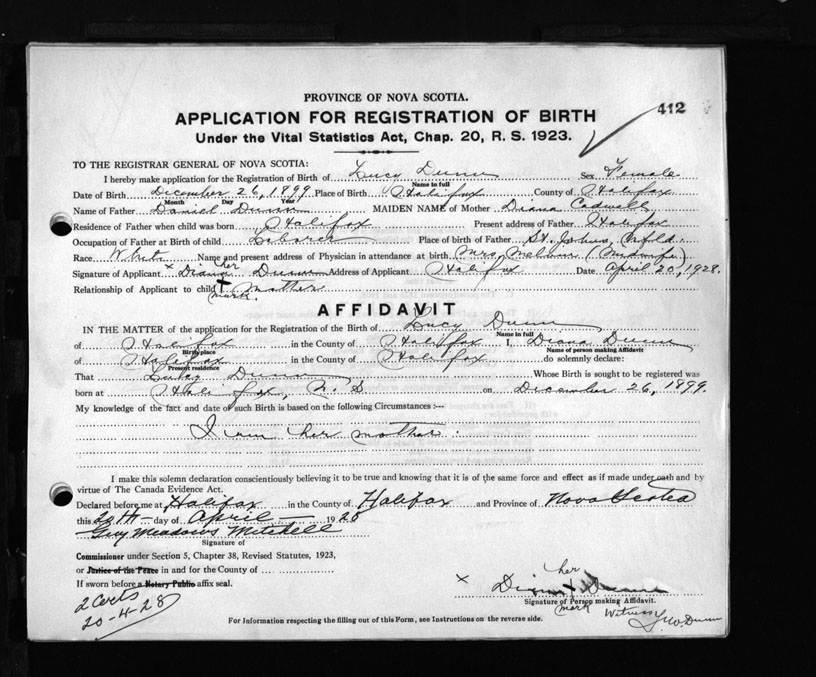 PROVINCE OF NOVA SCOTIA.
412
APPLICATION FOR REGISTRATION OF BIRTH
Under the Vital Statistics Act, Chap. 20, R. S. 1923.
TO THE REGISTRAR GENERAL OF NOVA SCOTIA:
I hereby make application for the Registration of Birth of Lucy Dunn Sex Female
Name in full
Date of Birth December 26, 1899 Place of Birth Halifax County of Halifax
Month Day Year
Name of Father Daniel Dunn MAIDEN NAME of Mother Diana Cadwell
Residence of Father when child was born Halifax Present address of Father Halifax
Occupation of Father at Birth of child Laborer Place of birth of Father St. Johns, Nfld.
Race White Name and present address of Physician in attendance at birth Mrs. (Midwife)
Signature of Applicant x Diana her Dunn Address of Applicant Halifax Date April 20, 1928.
Relationship of Applicant to child Mother
mark.
AFFIDAVIT
IN THE MATTER of the application for the Registration of the Birth of Lucy Dunn
Name in full
of Halifax in the County of Halifax I, Diana Dunn
Birth place Name of person making Affidavit
of Halifax in the County of Halifax do solemnly declare:
Present residence
That Lucy Dunn Whose Birth is sought to be registered was
born at Halifax, N. S on December 26, 1899.
My knowledge of the fact and date of such Birth is based on the following Circumstances :—
I am her mother.
I make this solemn declaration conscientiously believing it to be true and knowing that it is of the same force and effect as if made under oath and by
virtue of The Canada Evidence Act.
Declared before me at Halifax in the County of Halifax and Province of Nova Scotia
this 20th day of April 1928
Guy Meadows Mitchell
Signature of
Commissioner under Section 5, Chapter 38, Revised Statutes, 1923,
or Justice of the Peace in and for the County of
If sworn before a Notary Public affix seal.
her
x Diana x Dunn
Signature of Person making Affidavit.
mark Witness Dunn
2 Certs
20-4-28
For Information respecting the filling out of this Form, see Instructions on the reverse side.